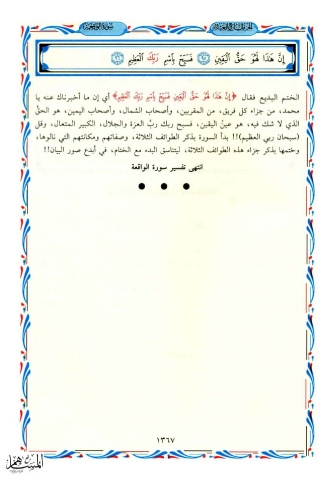 سورة الواقعة
إِنَّ هَٰذَا لَهُوَ حَقُّ الْيَقِينِ ﴿٩٥﴾ فَسَبِّحْ بِاسْمِ رَبِّكَ الْعَظِيمِ ﴿٩٦﴾
الختم البديع فقال ﴿إِنَّ هَٰذَا لَهُوَ حَقُّ الْيَقِينِ فَسَبِّحْ بِاسْمِ رَبِّكَ الْعَظِيمِ﴾ أي إن ما أخبرناك عنه يا
محمد، من جزاء كل فريق، من المقربين، وأصحاب الشمال، وأصحاب اليمين، هو الحقُّ
الذي لا شك فيه، هو عينُ اليقين، فسبح ربك ربُّ العزة والجلال، الكبير المتعال، وقل
(سبحان ربي العظيم)!! بدأ السورة بذكر الطوائف الثلاثة، وصفاتهم ومكانتهم التي نالوها،
وختمها بذكر جزاء هذه الطوائف الثلاثة، ليتناسق البدء مع الختام، في أبدع صور البيان!!
انتهى تفسير سورة الواقعة
١٣٦٧